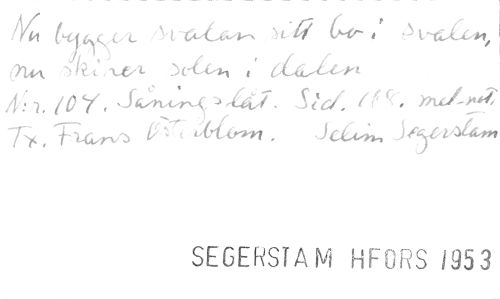 Nu bygger svalan sitt bo i svalen,
nu skiner solen i dalen
N:r. 104. Såningslåt. Sid. 118. mel-not.
Tx. Frans Österblom. Selim Segerstam
SEGERSTAM HFORS 1953